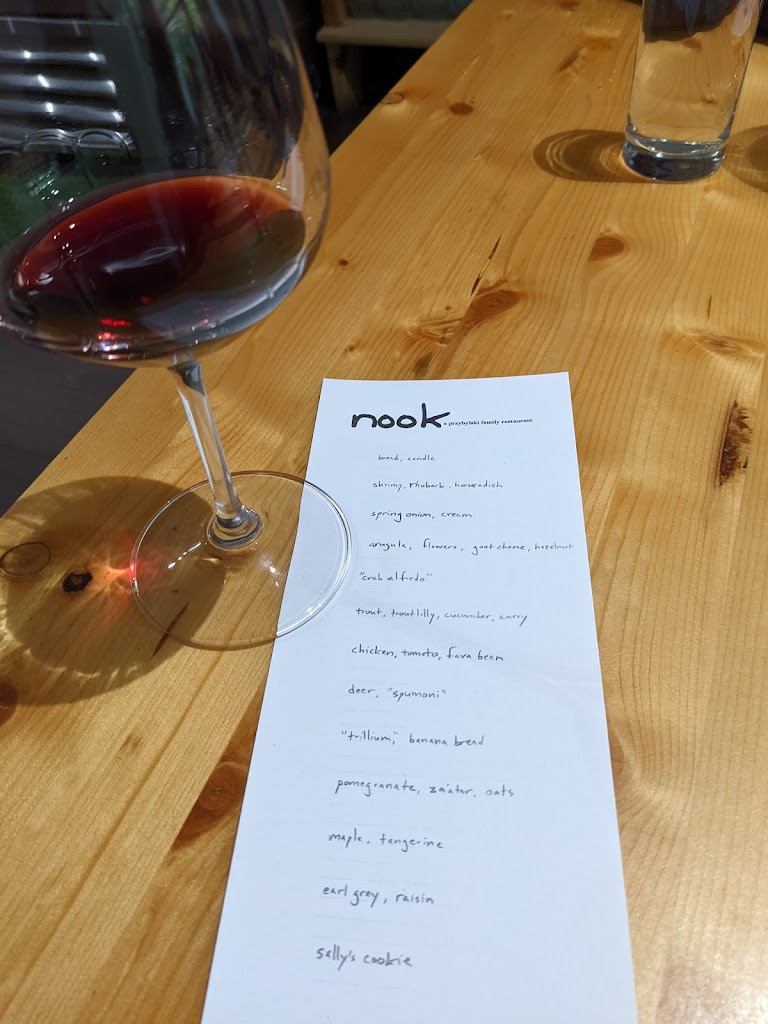 nook a przybylski family restaurant
bread, candle
shrimp, rhubarb, horseradish
spring onion, cream
arugula, flowers, goat cheese, hazelnut
"crab alfredo"
trout, trout lilly, cucumber, curry
chicken, tomato, fava bean
deer, "spumoni"
"trillium," banana bread
pomegranate, za'atar, oats
maple, tangerine
earl grey, raisin
sally's cookie